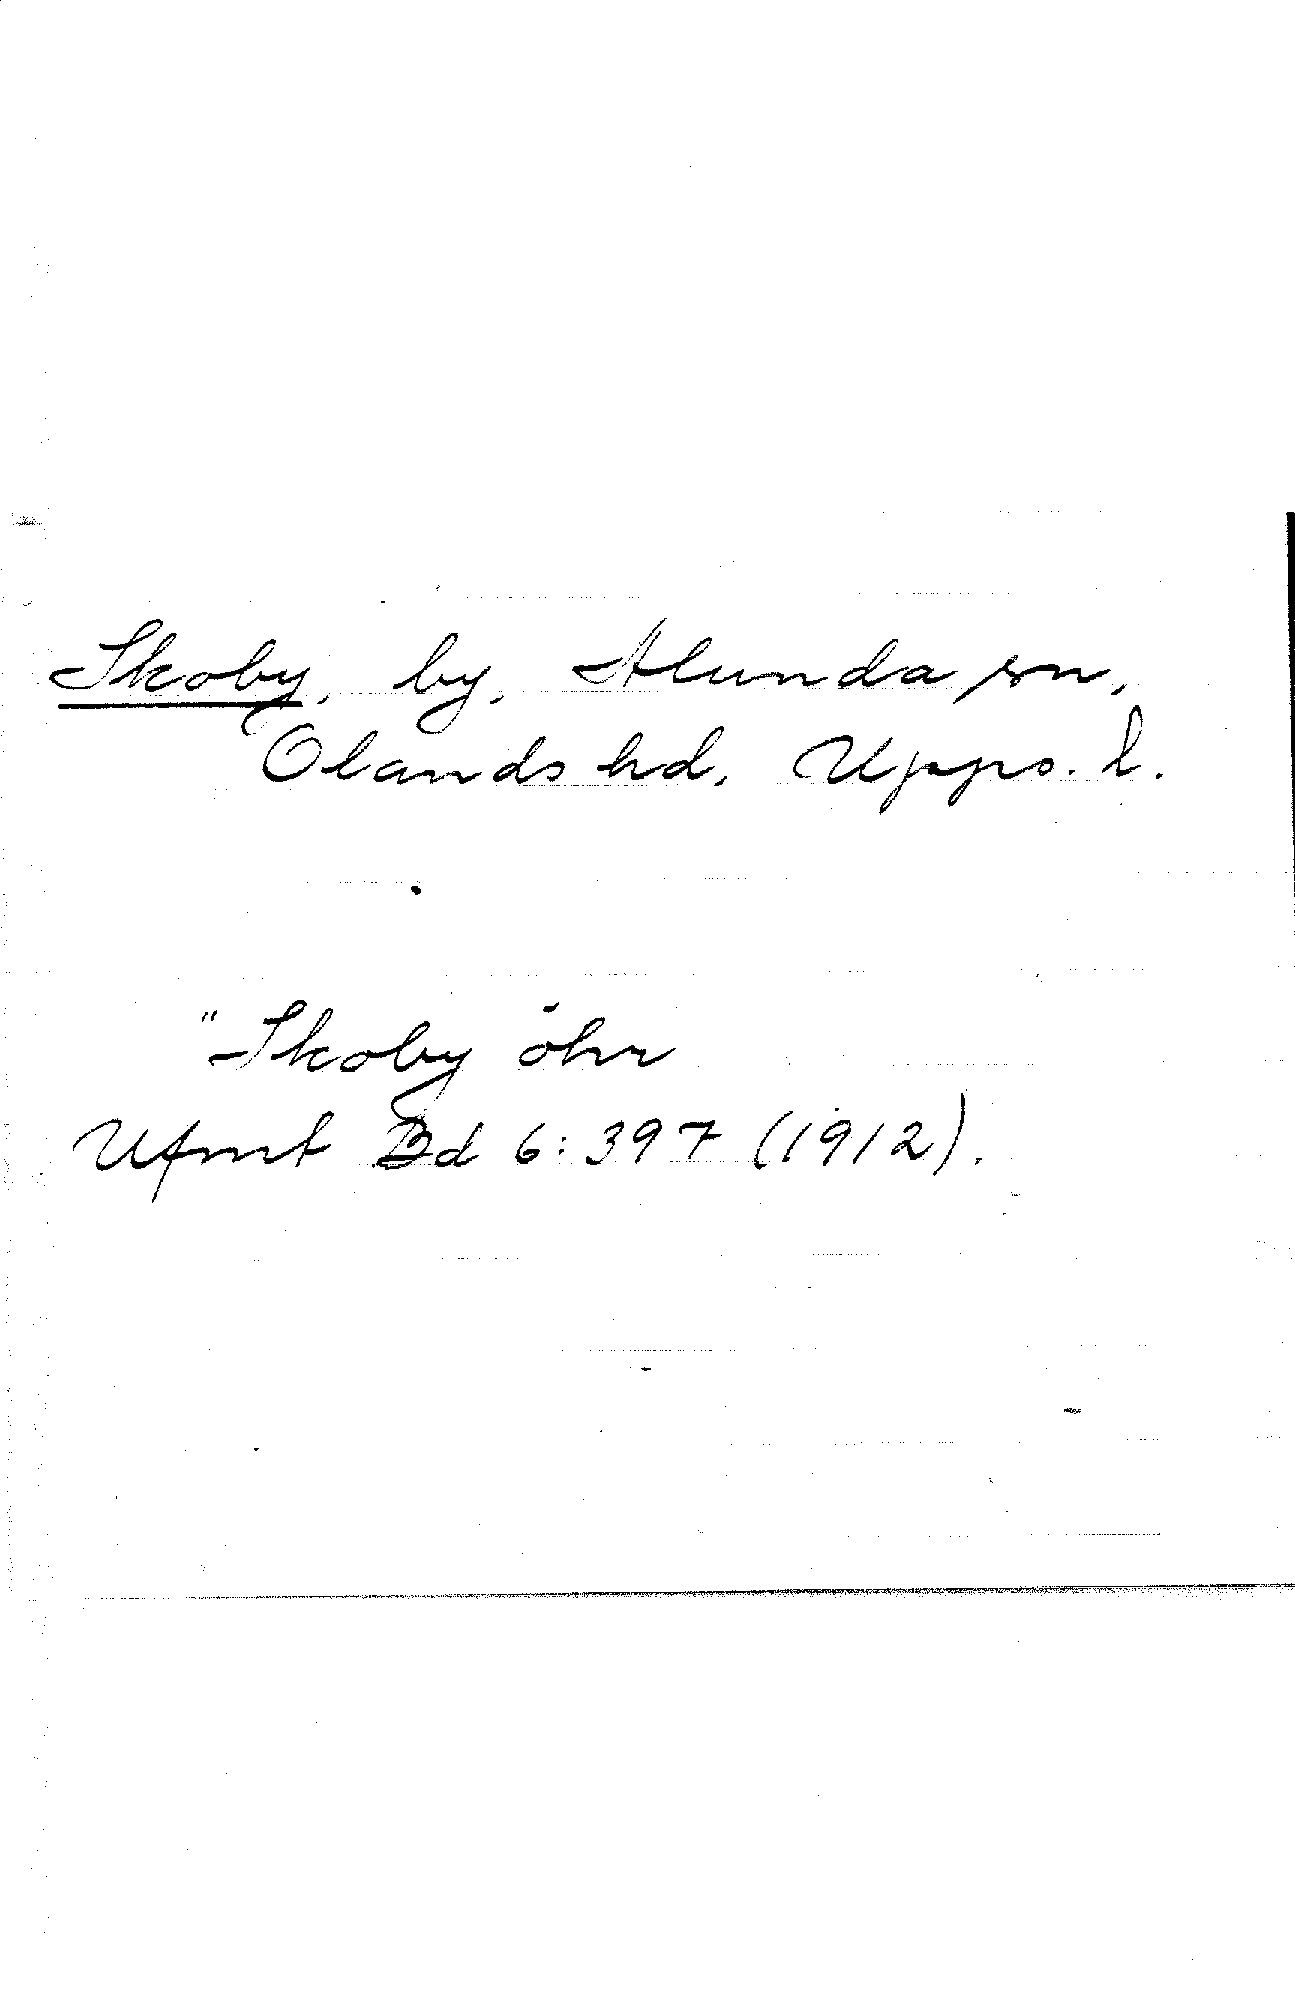 Skoby, by, Alunda sn,
Olands hd, Upps. l.
"Skoby öhr
Ufmt Bd 6:397 (1912).